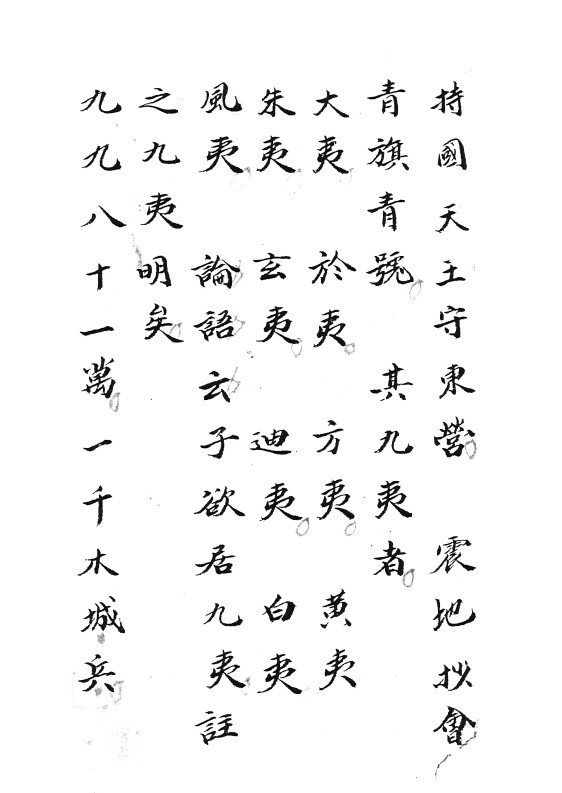 持國天王守東營 震地抄會
青旗青號 其九夷者
大夷 於夷 方夷 黄夷
朱夷 玄夷 迪夷 白夷
風夷 論語云子欲居九夷註
之九夷明矣
九九八十一萬一千木城兵